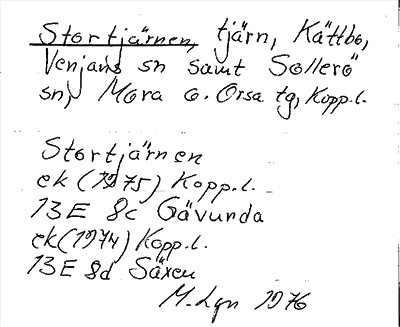 Stortjärnen, tjärn, Kättbo,
Venjans sn samt Sollerö
sn, Mora o. Orsa tg, Kopp.l.
Stortjärnen
ek (1975) Kopp.l.
13E 8c Gävunda
ek (1974) Kopp.l.
13E 8d Säxen
M.Lgn 1976